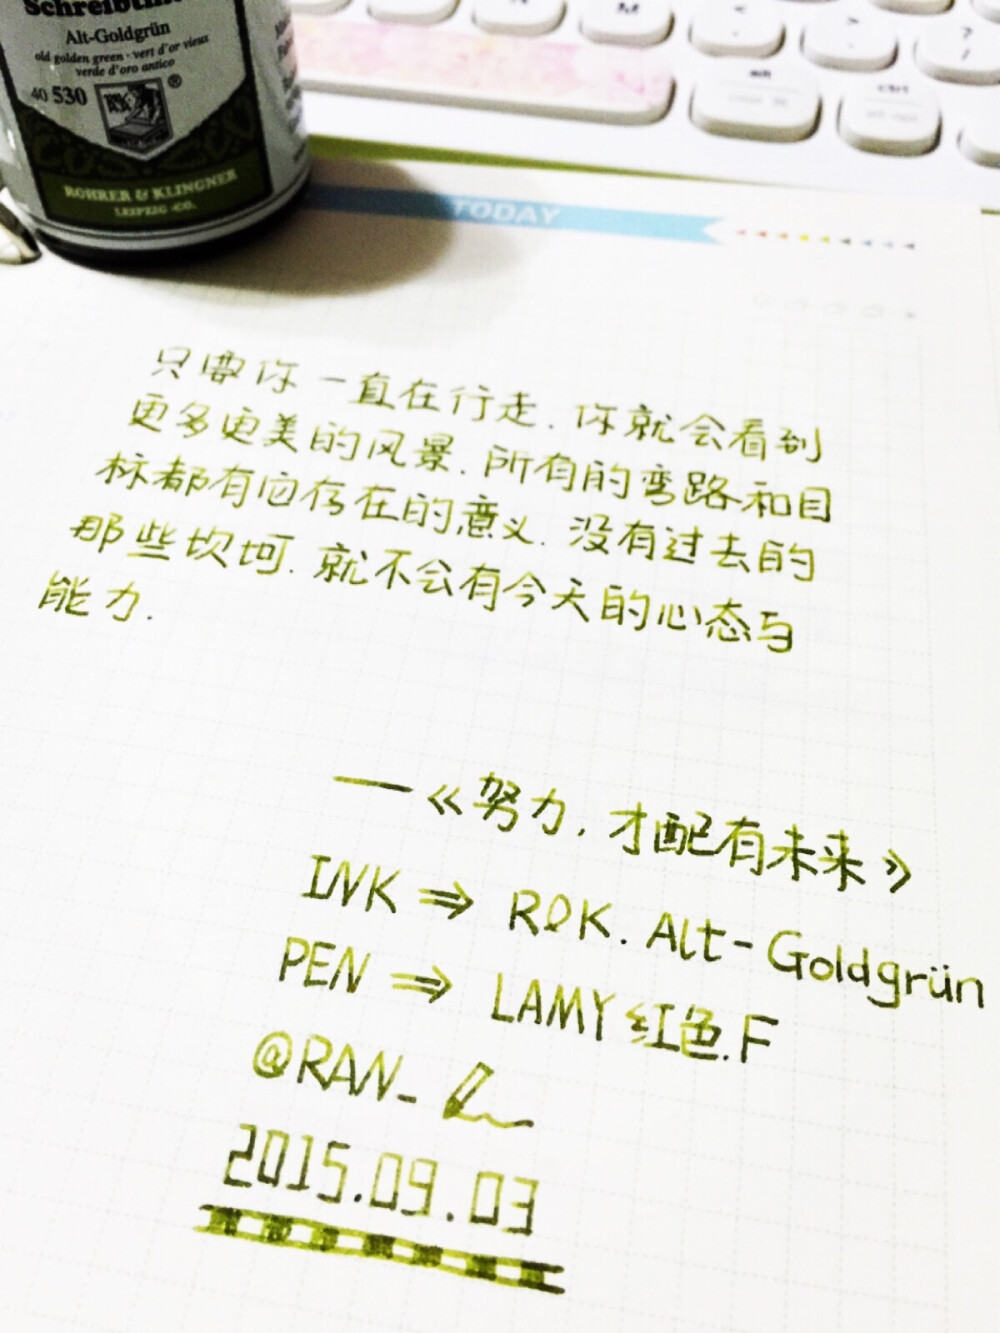 Alt-Goldgrün
old golden green - vert d'or vieux
verde d'oro antico
40 530
®
ROHRER & KLINGNER
LEIPZIG -CO.
N
M
<
>
?
/
alt
ctrl
TODAY
只要你一直在行走.你就会看到
更多更美的风景.所有的弯路和目
标都有它存在的意义.没有过去的
那些坎坷.就不会有今天的心态与
能力.
—《努力,才配有未来》
INK ⇒ R&K. Alt-Goldgrün
PEN ⇒ LAMY 红色.F
@RAN_
2015.09.03